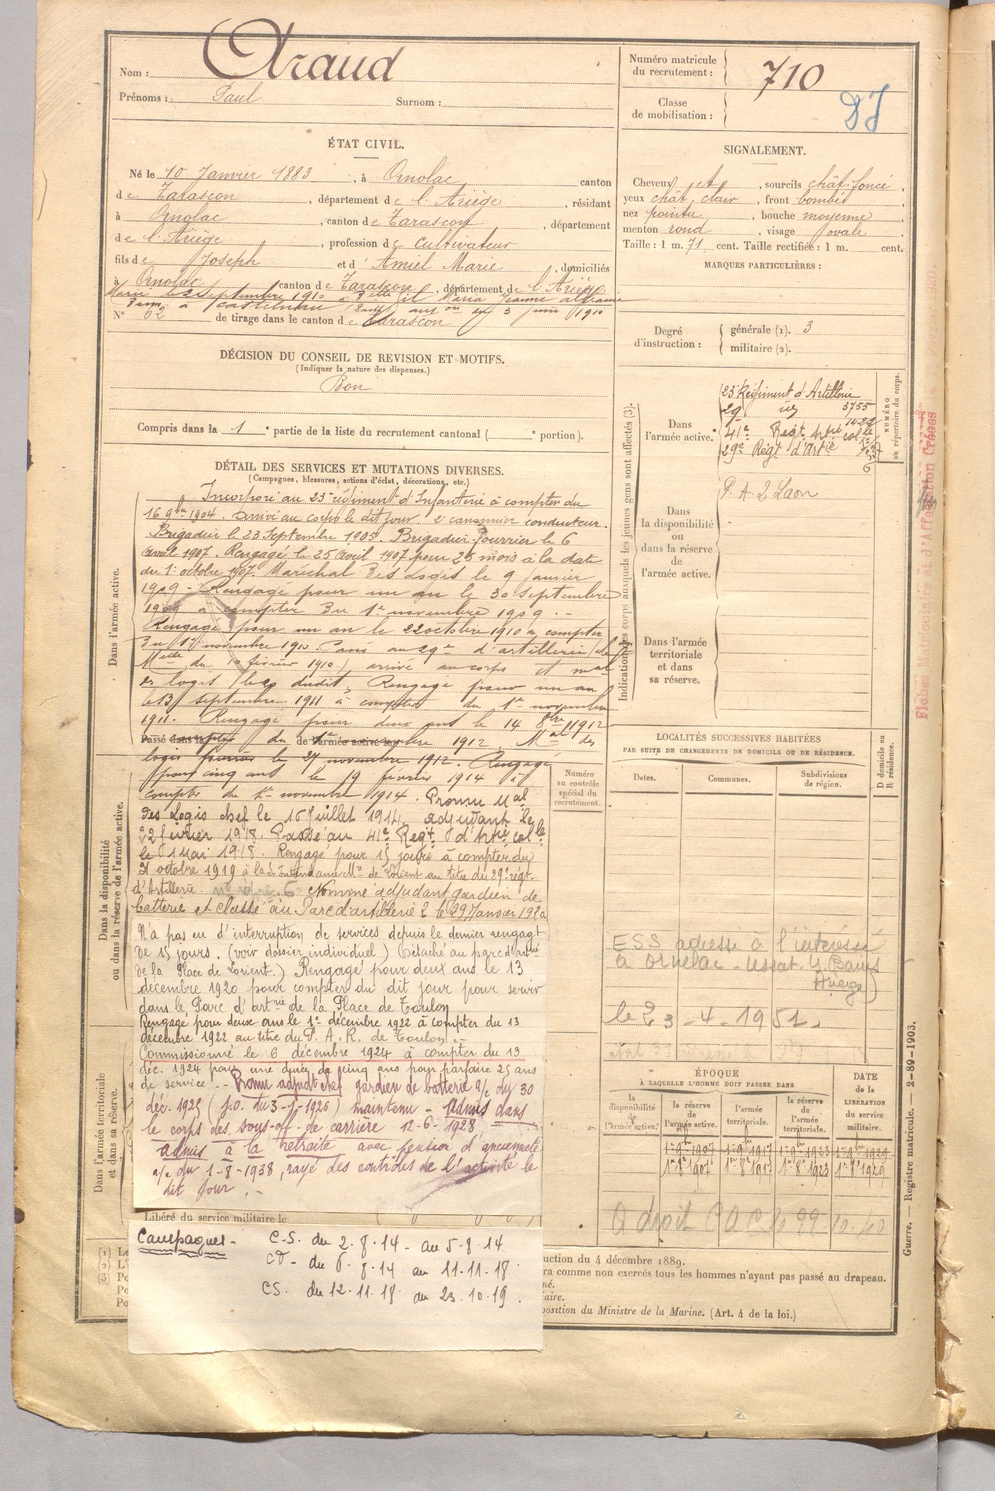 Nom : Araud
Prénoms : Paul Surnom :
Numéro matricule du recrutement : 710
Classe de mobilisation :
ÉTAT CIVIL.
Né le 10 Janvier 1883, à Ornolac canton
de Tarascon, département de l'Ariège, résidant
à Ornolac, canton de Tarascon, département
de l'Ariège, profession de cultivateur
fils de Joseph et d'Amiel Marie, domiciliés
à Ornolac, canton de Tarascon, département de l'Ariège
Marié le 2 septembre 1910 à Maria Jeanne
N° 62 de tirage dans le canton de Tarascon
SIGNALEMENT.
Cheveux et, sourcils chât. foncé,
yeux chât. clair, front bombé
nez pointu, bouche moyenne
menton rond, visage ovale
Taille : 1 m. 71 cent. Taille rectifiée : 1 m. cent.
MARQUES PARTICULIÈRES :
Degré d'instruction : générale (1). 3
militaire (2).
DÉCISION DU CONSEIL DE REVISION ET MOTIFS.
(Indiquer la nature des dispenses.)
Bon
Compris dans la 1e partie de la liste du recrutement cantonal ( e portion).
DÉTAIL DES SERVICES ET MUTATIONS DIVERSES.
(Campagnes, blessures, actions d'éclat, décorations, etc.)
Dans l'armée active.
Incorporé au 23e régiment d'Infanterie à compter du
16 9bre 1904. Arrivé au corps le dit jour. 2e canonnier conducteur.
Brigadier le 23 Septembre 1905. Brigadier fourrier le 6
avril 1907. Rengagé le 25 avril 1907 pour 25 mois à la date
du 1er octobre 1907. Maréchal des Logis le 9 janvier
1909 - Rengagé pour un an le 30 septembre
1909 à compter du 1er novembre 1909. -
Rengagé pour un an le 22 octobre 1910 à compter
du 1er novembre 1910. Passé au 29e d'artillerie
du février 1910) arrivé au corps et mal
des logis le dudit. Rengagé pour un an
le 13 septembre 1911 à compter du 1er novembre
1911. Rengagé pour deux ans le 14 8bre 1912
du 1912. Mal des
logis fourrier le 27 novembre 1912. Rengagé
pour cinq ans le 19 février 1914 à
compter du 1er novembre 1914. Promu Mal
des Logis chef le 16 juillet 1914, adjudant le
22 février 1918. Passé au 41e Régt d'Artie colle
le 1 Mai 1918. Rengagé pour 15 jours à compter du
31 octobre 1919 à la S/Intendance Mre de Lorient au titre du 29e régt.
d'Artillerie. Nommé adjudant gardien de
batterie et classé au Parc d'artillerie 2 le 29 Janvier 1920
N'a pas eu d'interruption de services depuis le dernier rengagt
de 15 jours. (voir dossier individuel) (Détaché au parc d'artie
de la Place de Lorient.) Rengagé pour deux ans le 13
décembre 1920 pour compter du dit jour pour servir
dans le Parc d'artrie de la Place de Toulon
Rengagé pour deux ans le 1er décembre 1922 à compter du 13
décembre 1922 au titre du P. A. R. de Toulon. -
Commissionné le 6 décembre 1924 à compter du 13
déc. 1924 pour une durée de cinq ans pour parfaire 25 ans
de service. - Promu adjudt chef gardien de batterie p/c du 30
déc. 1925 (J.O. du 3-1-1926) maintenu - Admis dans
le corps des sous-off. de carrière 12-6-1928
Admis à la retraite avec pension d'ancienneté
p/c du 1-8-1938, rayé des contrôles de l'activité le
dit jour. -
Dans la disponibilité ou dans la réserve de l'armée active.
Dans l'armée territoriale et dans sa réserve.
Libéré du service militaire le
Campagnes -
C-S. du 2-8-14 - au 5-8-14
CD - du 6-8-14 au 11-11-18
CS. du 12-11-18 au 23-10-19.
Indication des corps auxquels les jeunes gens sont affectés (3).
Dans l'armée active.
23e Régiment d'Artillerie
29e 3755
41e Régt Artie colle
29e Régt d'Artie
NUMÉRO au répertoire du corps.
Dans la disponibilité ou dans la réserve de l'armée active.
P. A. 2 Laon
Dans l'armée territoriale et dans sa réserve.
Numéro au contrôle spécial du recrutement.
LOCALITÉS SUCCESSIVES HABITÉES
PAR SUITE DE CHANGEMENTS DE DOMICILE OU DE RÉSIDENCE.
Dates. Communes. Subdivisions de région. D domicile ou R résidence.
ESS adressé à l'intéressé
à Ornolac - Ussat les Bains
Ariège)
le 23 - 4 - 1951.
ÉPOQUE
À LAQUELLE L'HOMME DOIT PASSER DANS
la disponibilité de l'armée active. la réserve de l'armée active. l'armée territoriale. la réserve de l'armée territoriale.
DATE de la LIBÉRATION du service militaire.
A droit
uction du 4 décembre 1889.
ra comme non exercés tous les hommes n'ayant pas passé au drapeau.
né.
aire.
position du Ministre de la Marine. (Art. 4 de la loi.)
Guerre. — Registre matricule. — 2-89-1903.